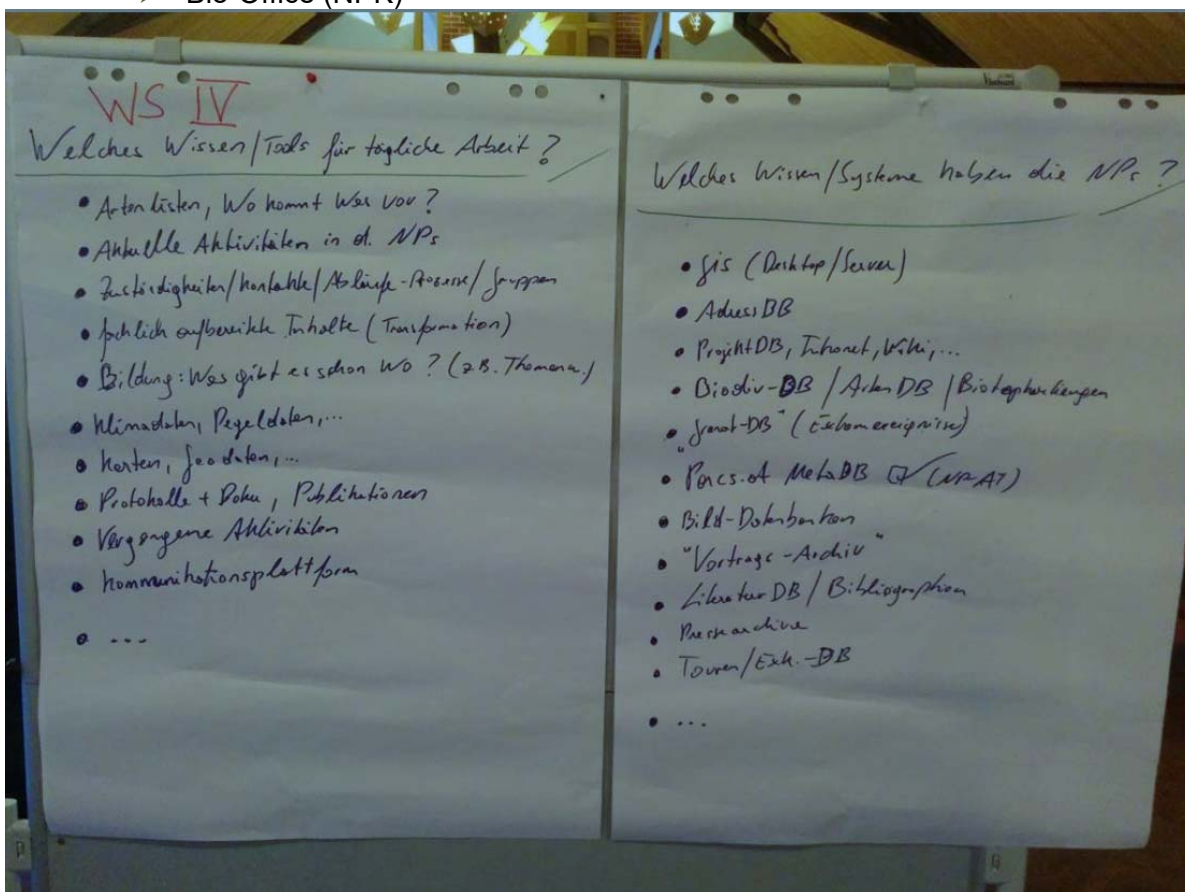 Bio Office (NPK)
WS IV
Welches Wissen/Tools für tägliche Arbeit?
• Artenlisten, Wo kommt Was vor?
• Aktuelle Aktivitäten in d. NPs
• Zuständigkeiten/Kontakte/Abläufe-Prozesse/Gruppen
• fachlich aufbereitete Inhalte (Transformation)
• Bildung: Was gibt es schon Wo? (z.B. Themenw.)
• Klimadaten, Pegeldaten,...
• Karten, Geodaten,...
• Protokolle + Doku, Publikationen
• Vergangene Aktivitäten
• Kommunikationsplattform
• ...
Welches Wissen/Systeme haben die NPs?
• Gis (Desktop/Server)
• AdressDB
• ProjektDB, Intranet, Wiki,...
• Biodiv-DB / ArtenDB / Biotopkartierungen
• -DB" (Extremereignisse)
• Parcs.at MetaDB (NP-AT)
• Bild-Datenbanken
• "Vortrags-Archiv"
• Literatur DB / Bibliographien
• Pressearchive
• Touren/Exk.-DB
• ...